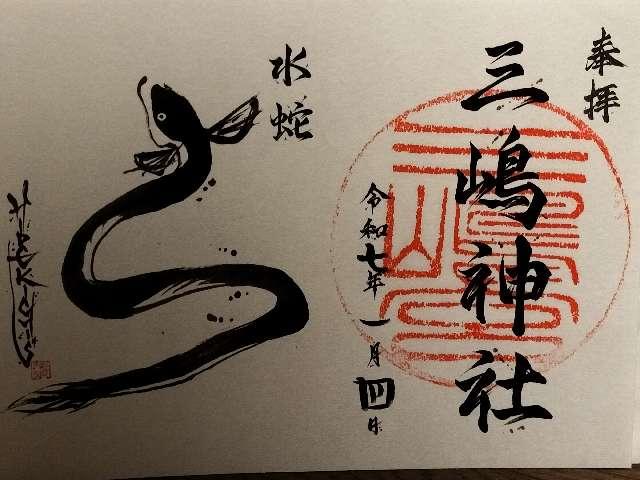 奉拝
三嶋神社
令和七年一月四日
水蛇